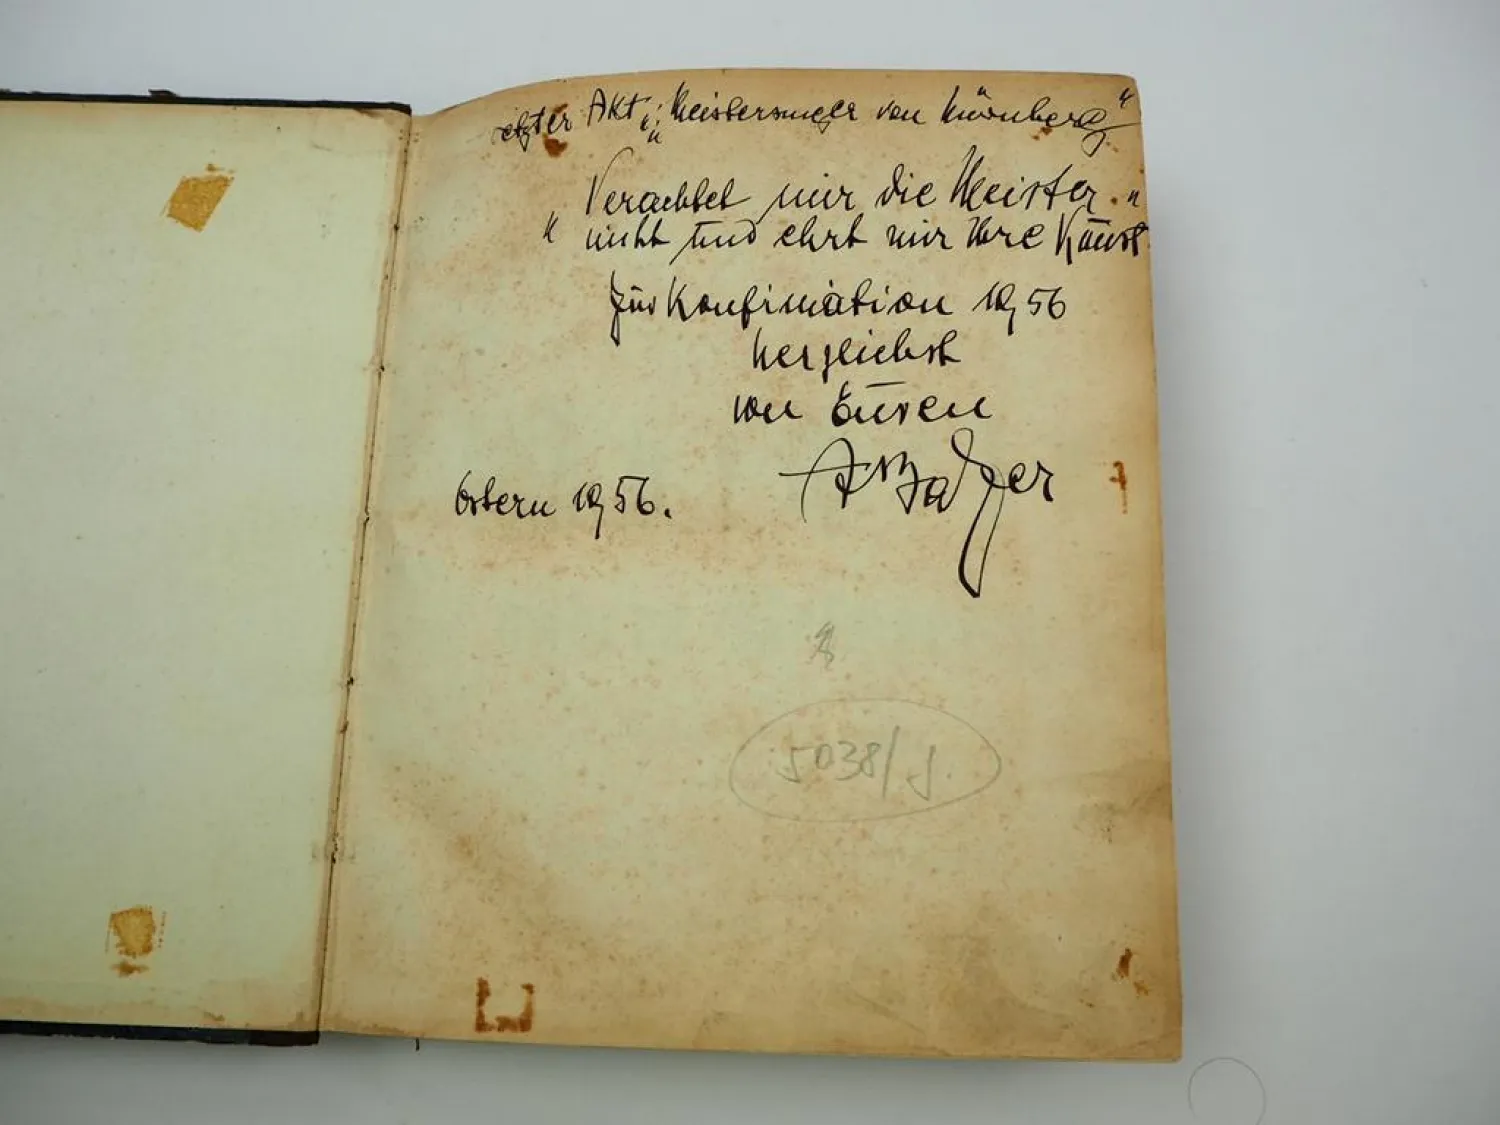 letzter Akt: "Meistersinger von Nürnberg"
"Verachtet mir die Meister
nicht und ehrt mir Ihre Kunst"
Zur Konfirmation 1956
herzlichst
von Euren
Balzer
Ostern 1956.
5038/J.